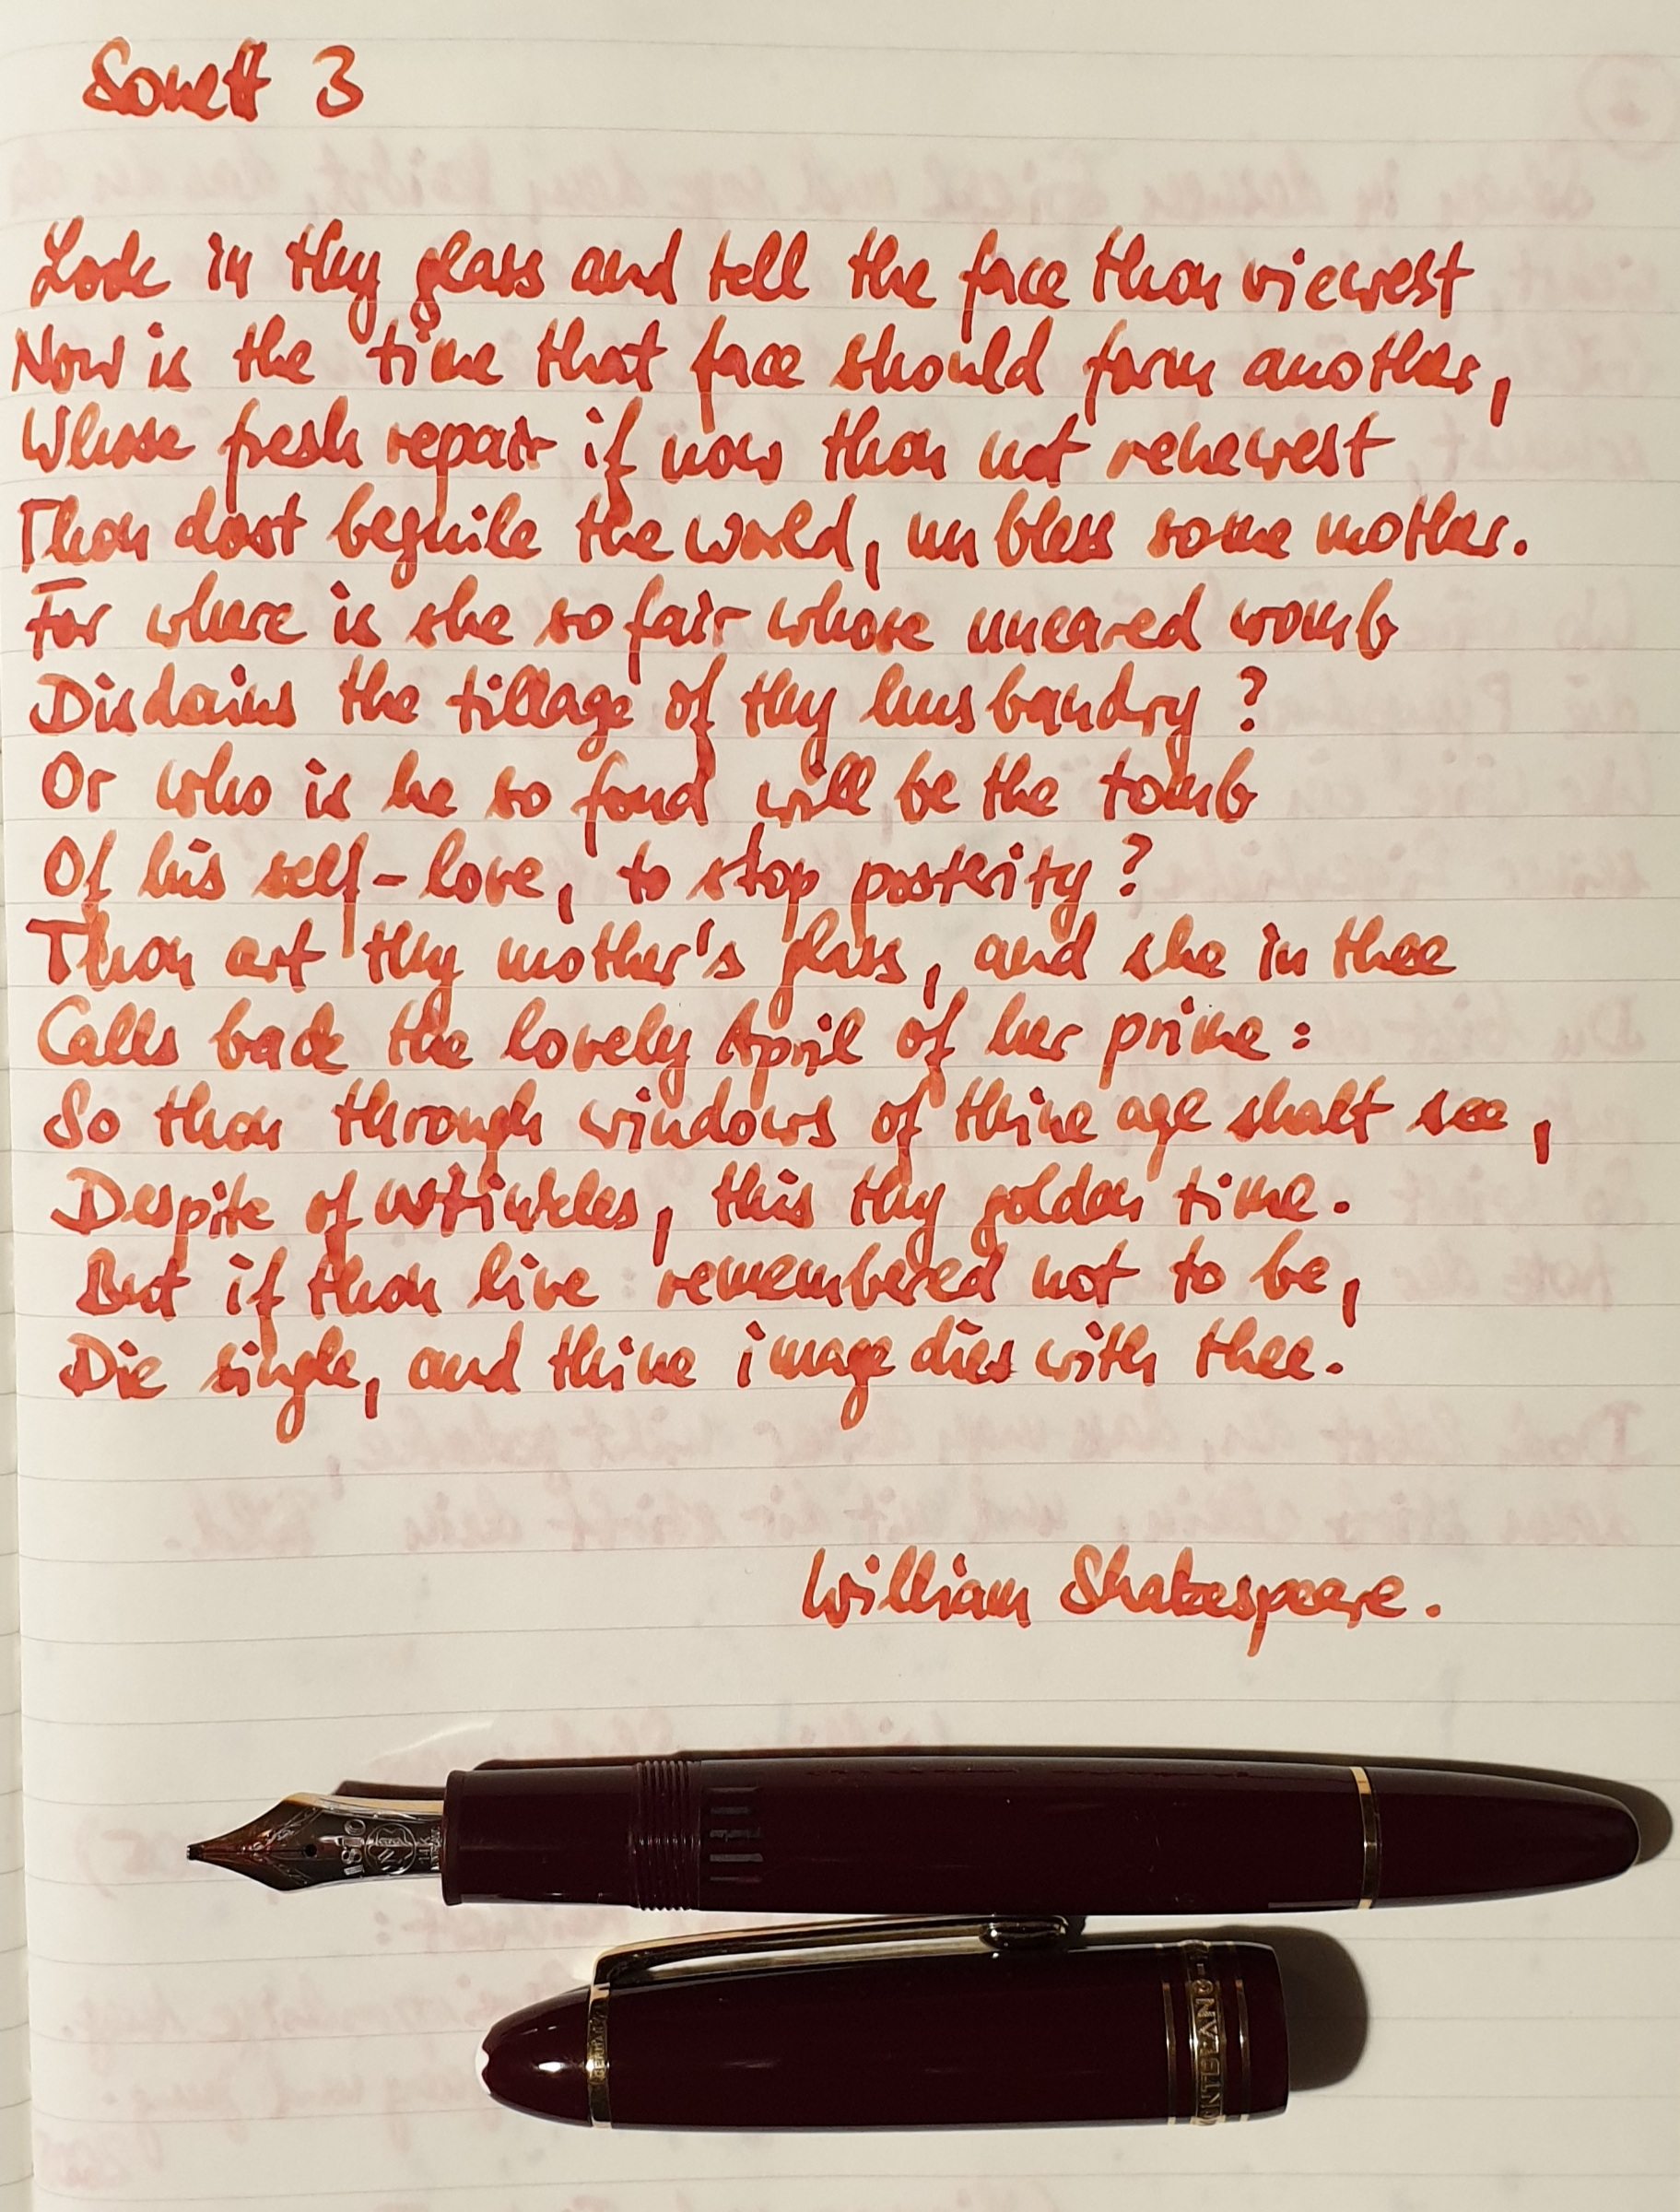 Sonett 3
Look in thy glass and tell the face thou viewest
Now is the time that face should form another,
Whose fresh repair if now thou not renewest
Thou dost beguile the world, unbless some mother.
For where is she so fair whose uneared womb
Disdains the tillage of thy husbandry?
Or who is he so fond will be the tomb
Of his self-love, to stop posterity?
Thou art thy mother's glass, and she in thee
Calls back the lovely April of her prime:
So thou through windows of thine age shalt see,
Despite of wrinkles, this thy golden time.
But if thou live remembered not to be,
Die single, and thine image dies with thee.
William Shakespeare.
4810